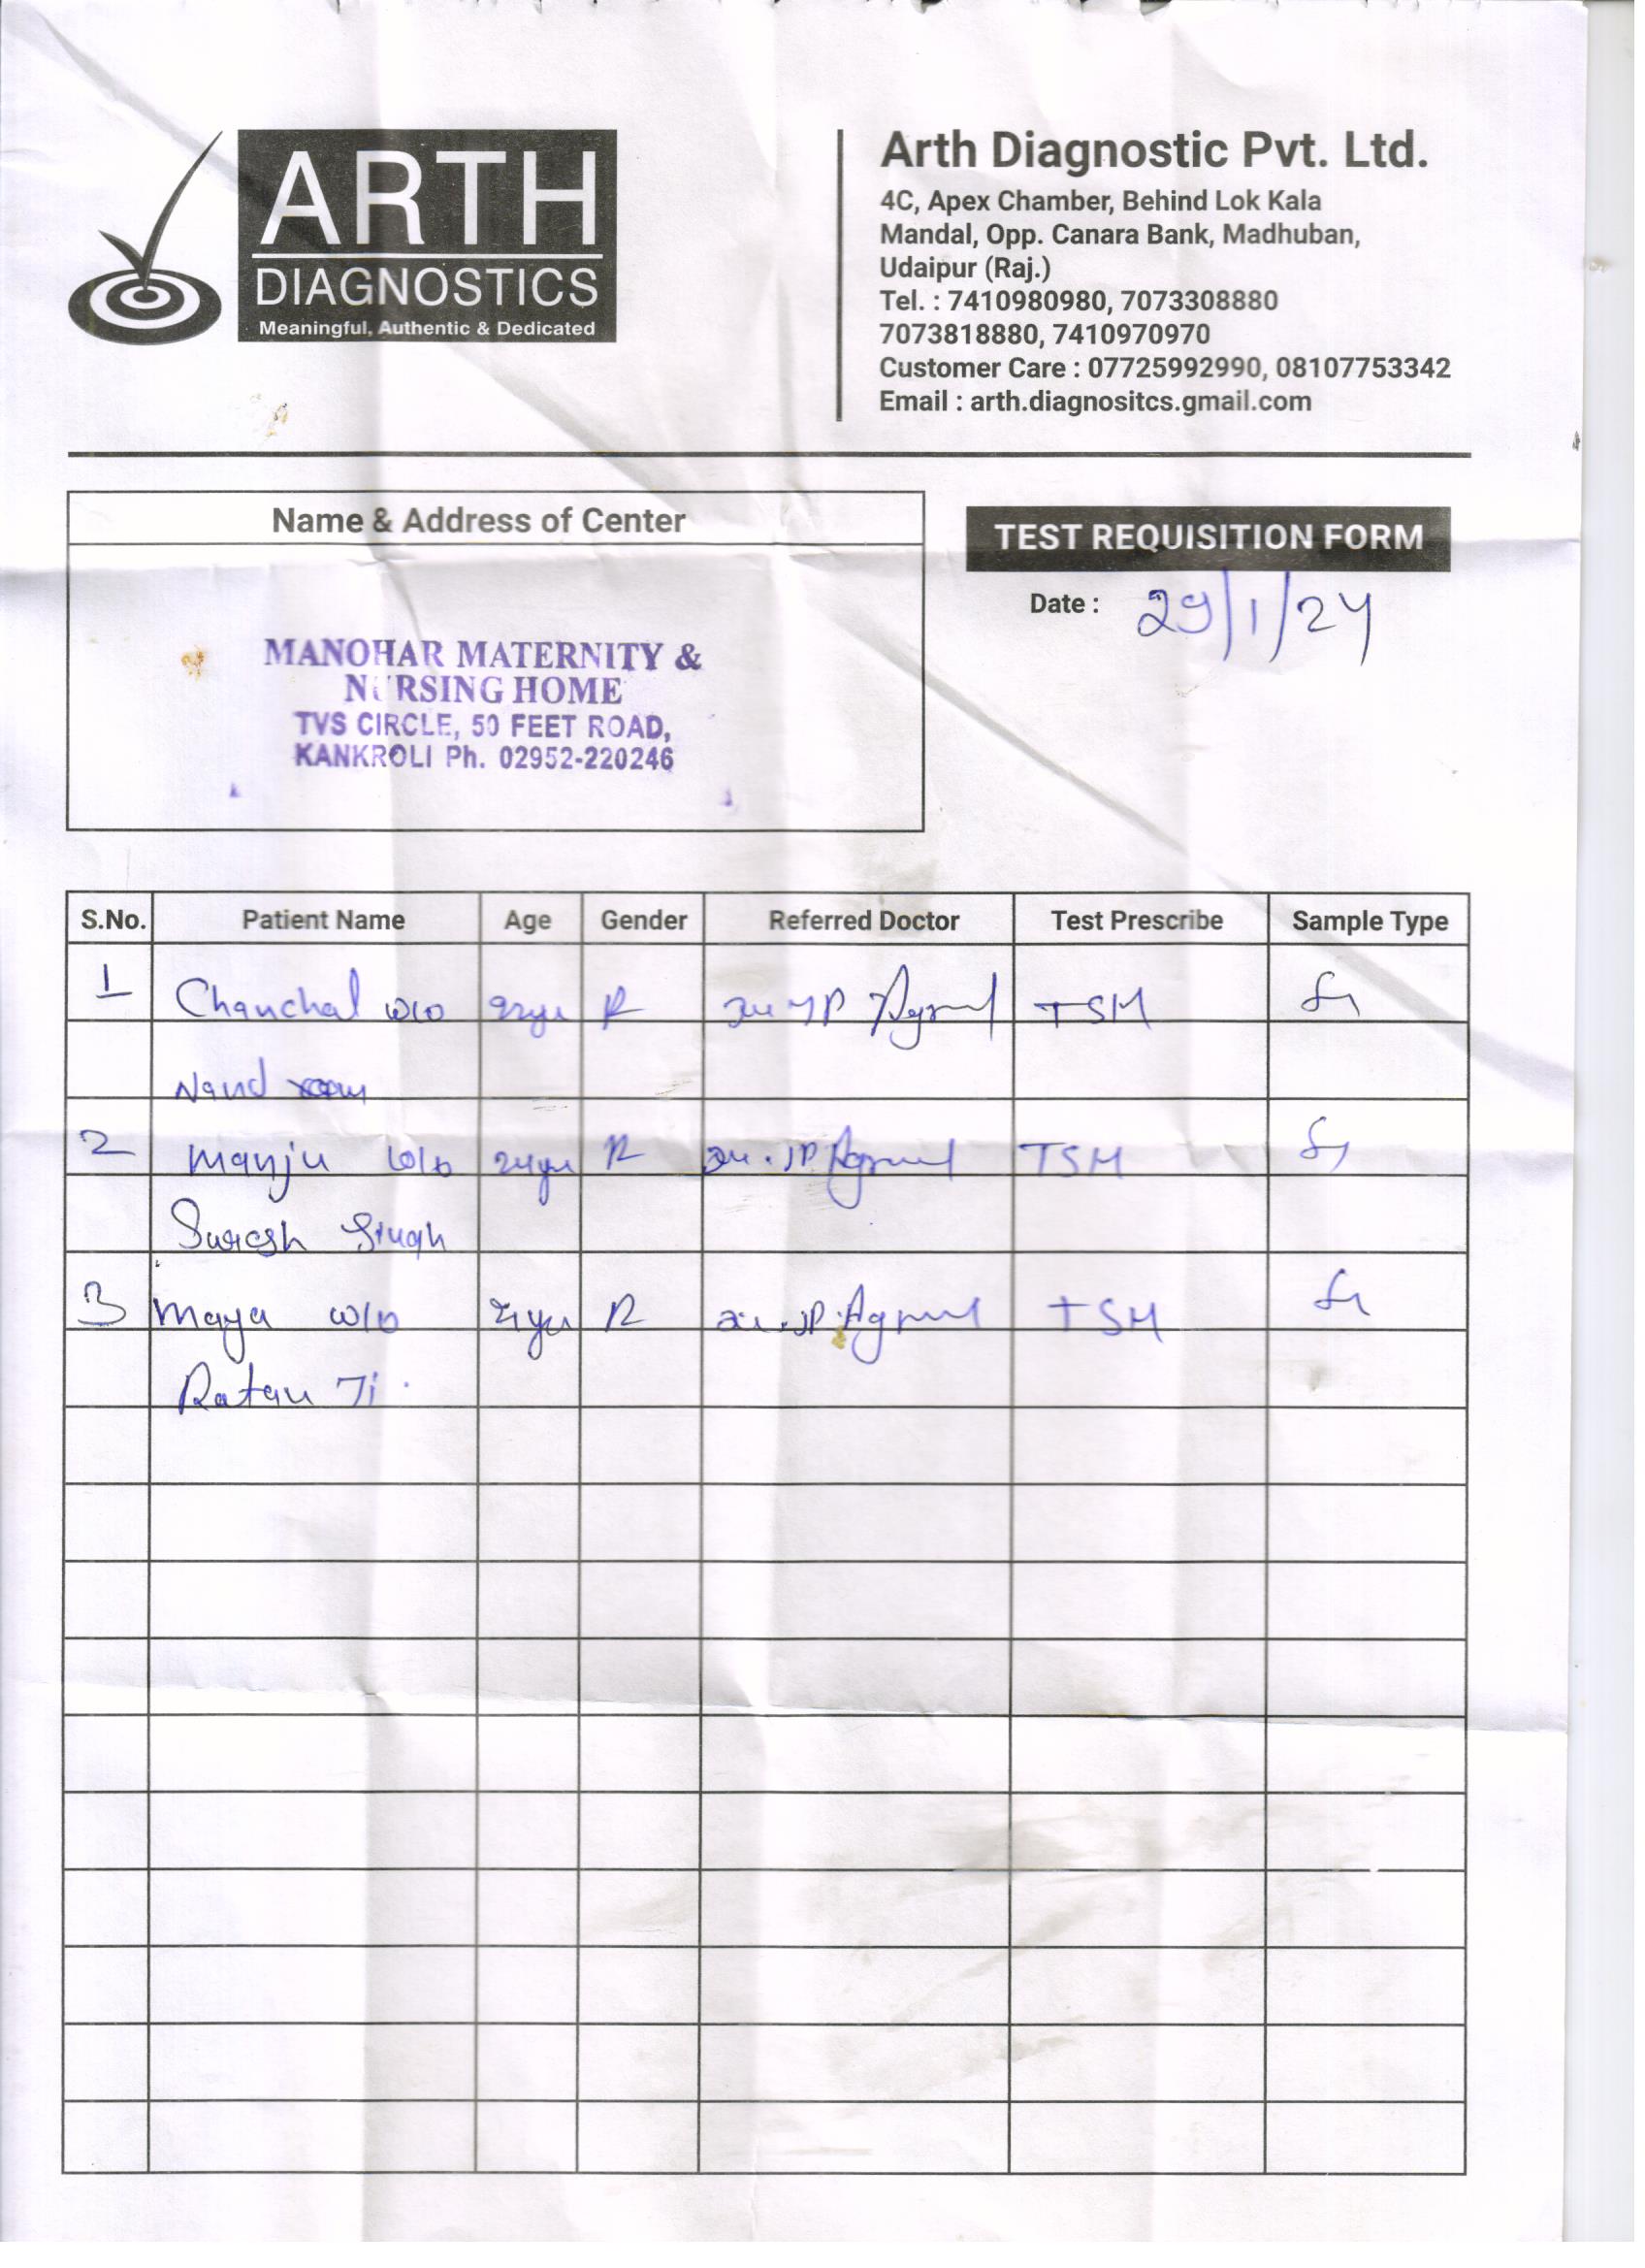 ARTH
DIAGNOSTICS
Meaningful, Authentic & Dedicated
Arth Diagnostic Pvt. Ltd.
4C, Apex Chamber, Behind Lok Kala
Mandal, Opp. Canara Bank, Madhuban,
Udaipur (Raj.)
Tel. : 7410980980, 7073308880
7073818880, 7410970970
Customer Care : 07725992990, 08107753342
Email : arth.diagnositcs.gmail.com
Name & Address of Center
MANOHAR MATERNITY &
NURSING HOME
TVS CIRCLE, 50 FEET ROAD,
KANKROLI Ph. 02952-220246
TEST REQUISITION FORM
Date : 29/1/24
S.No. Patient Name Age Gender Referred Doctor Test Prescribe Sample Type
1 Chanchal w/o JP Agrwal TSH
Nand
2 Manju w/o JP Agrwal TSH
Suresh Singh
3 Maya w/o JP Agrwal TSH
Ratan Ji